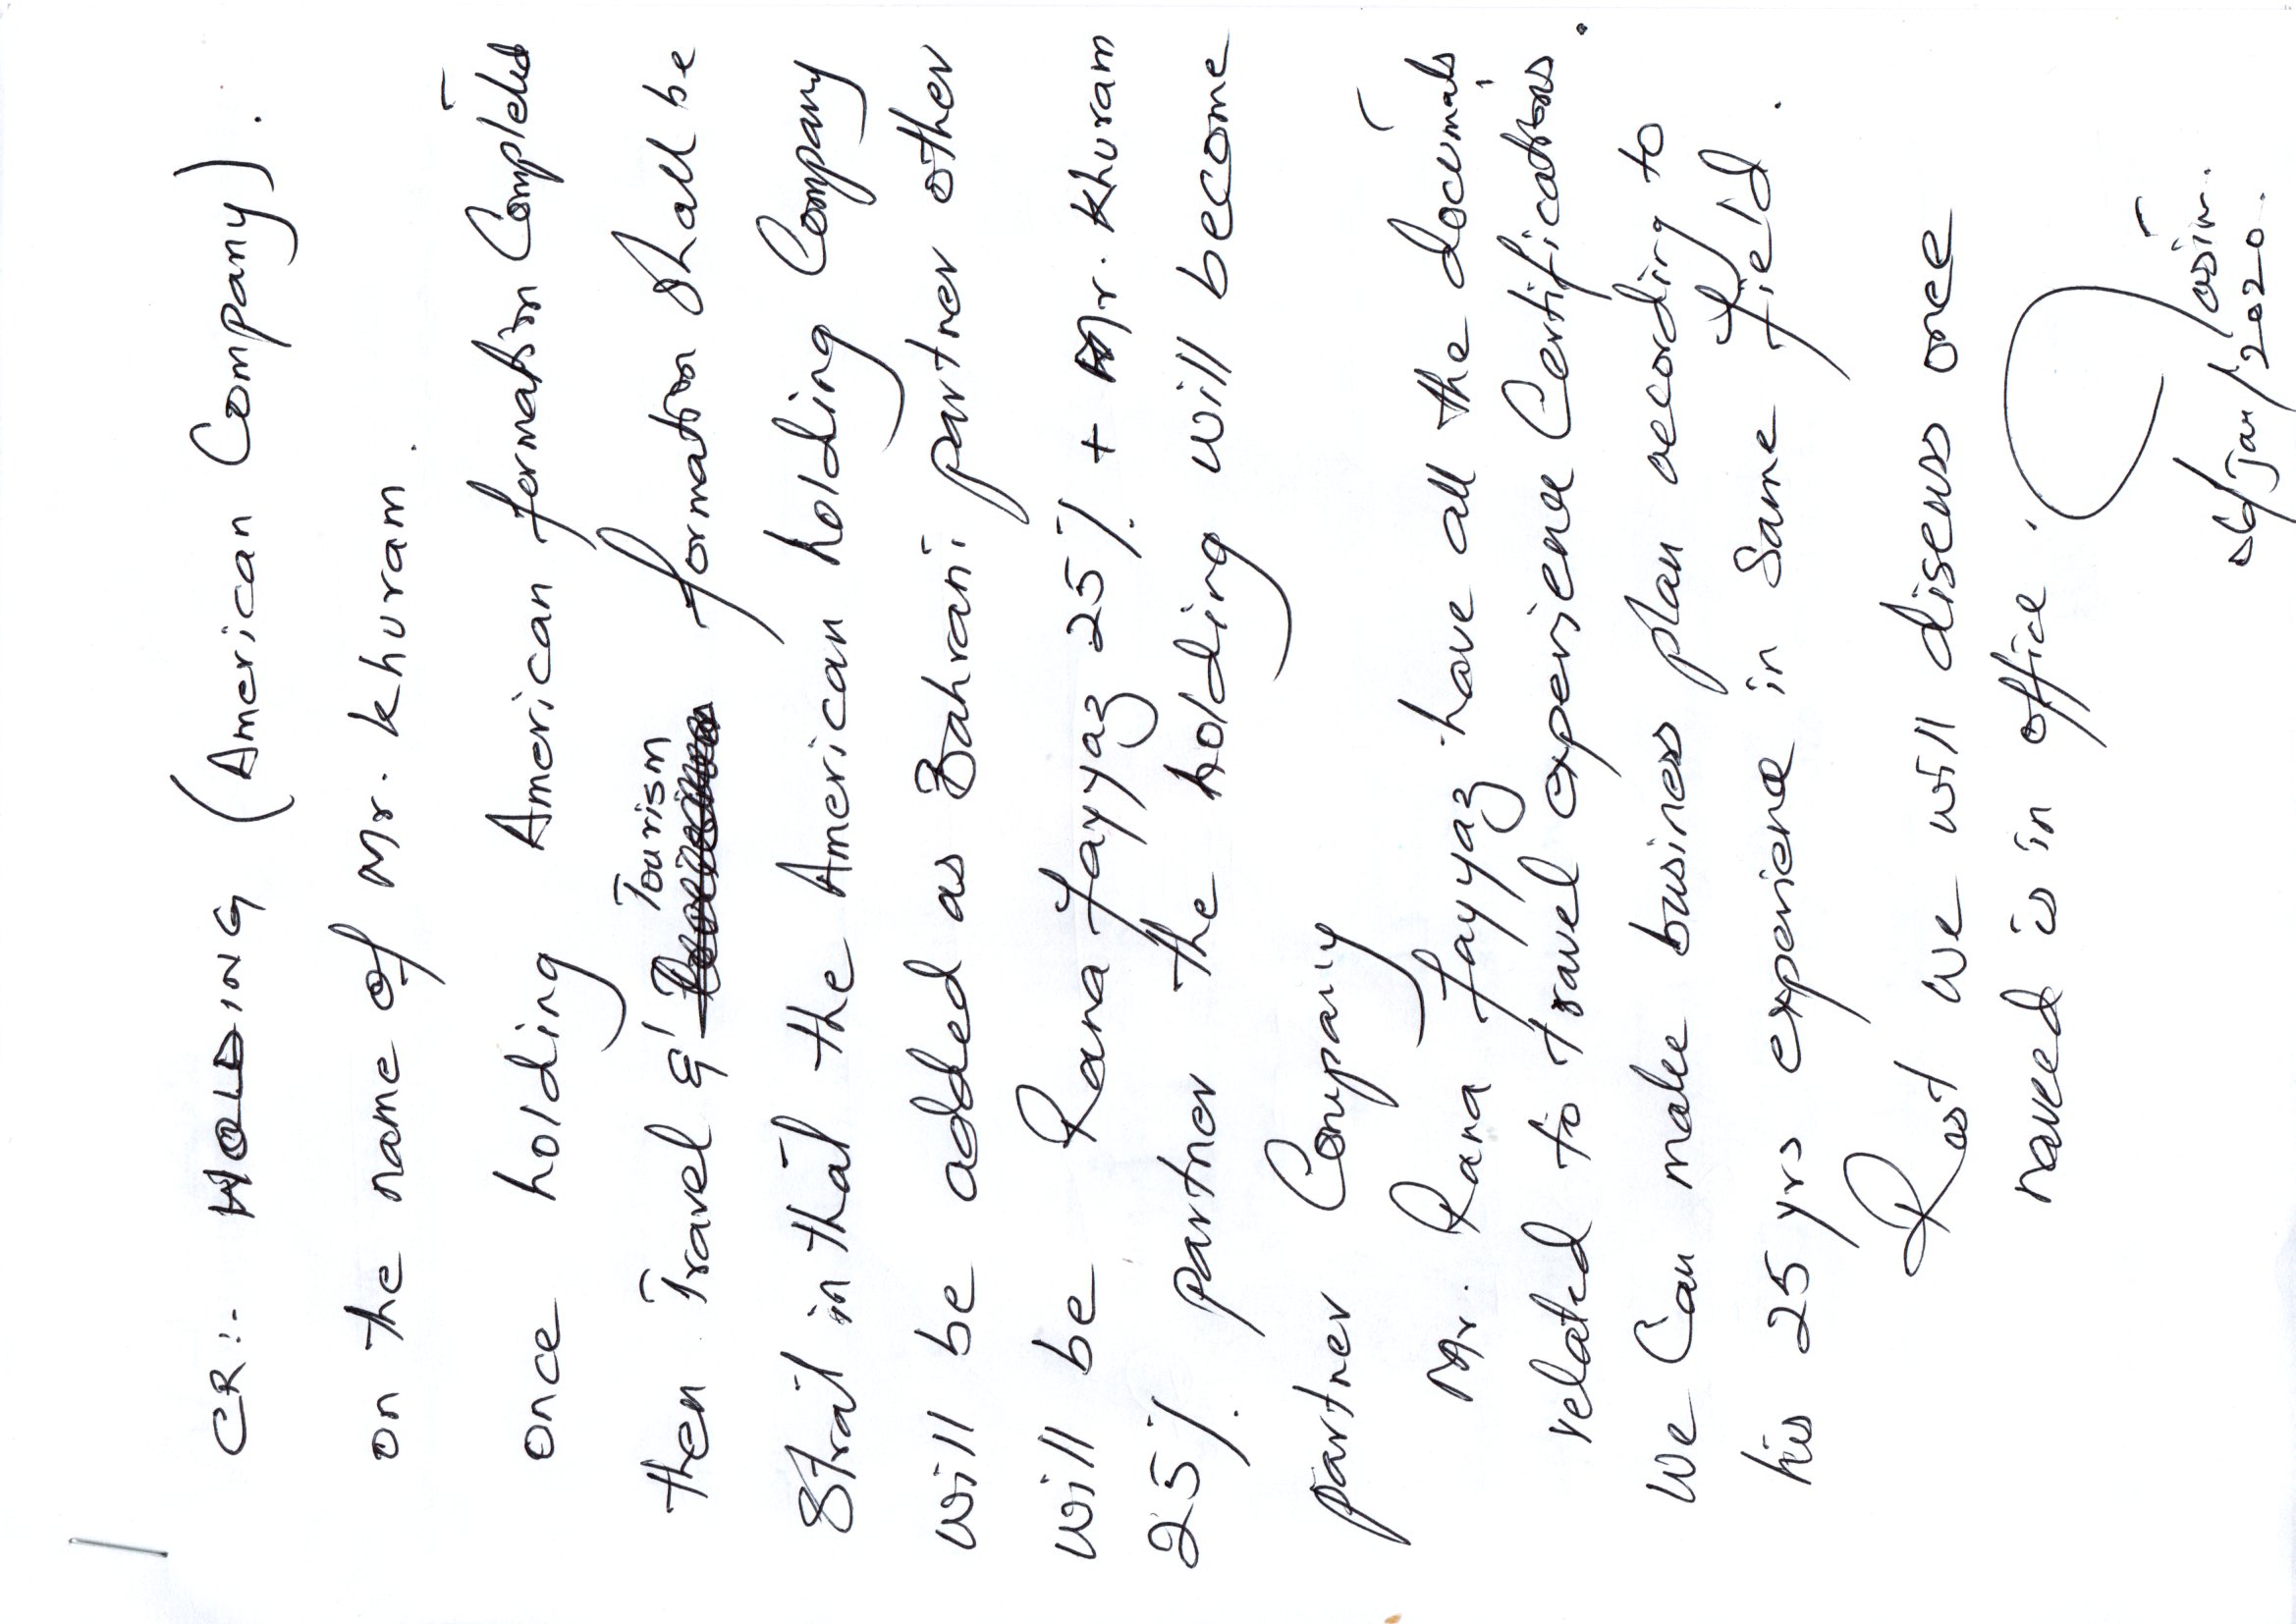 CR:- HOLDING (American Company).
on the name of Mr. Khuram.
once holding American formation Completed
then Travel & Tourism formation shall be
Strat in that the American holding Company
will be added as Bahrani partner other
will be Rana Fayyaz 25% + Mr. Khuram
25% partner the holding will become
partner Company
Mr. Rana Fayyaz have all the documents
related to travel experience Certifications.
We Can make business plan according to
his 25 yrs experience in Same field.
Rest we will discuss once
naved is in office.
Yasin.
06/Jan/2020.